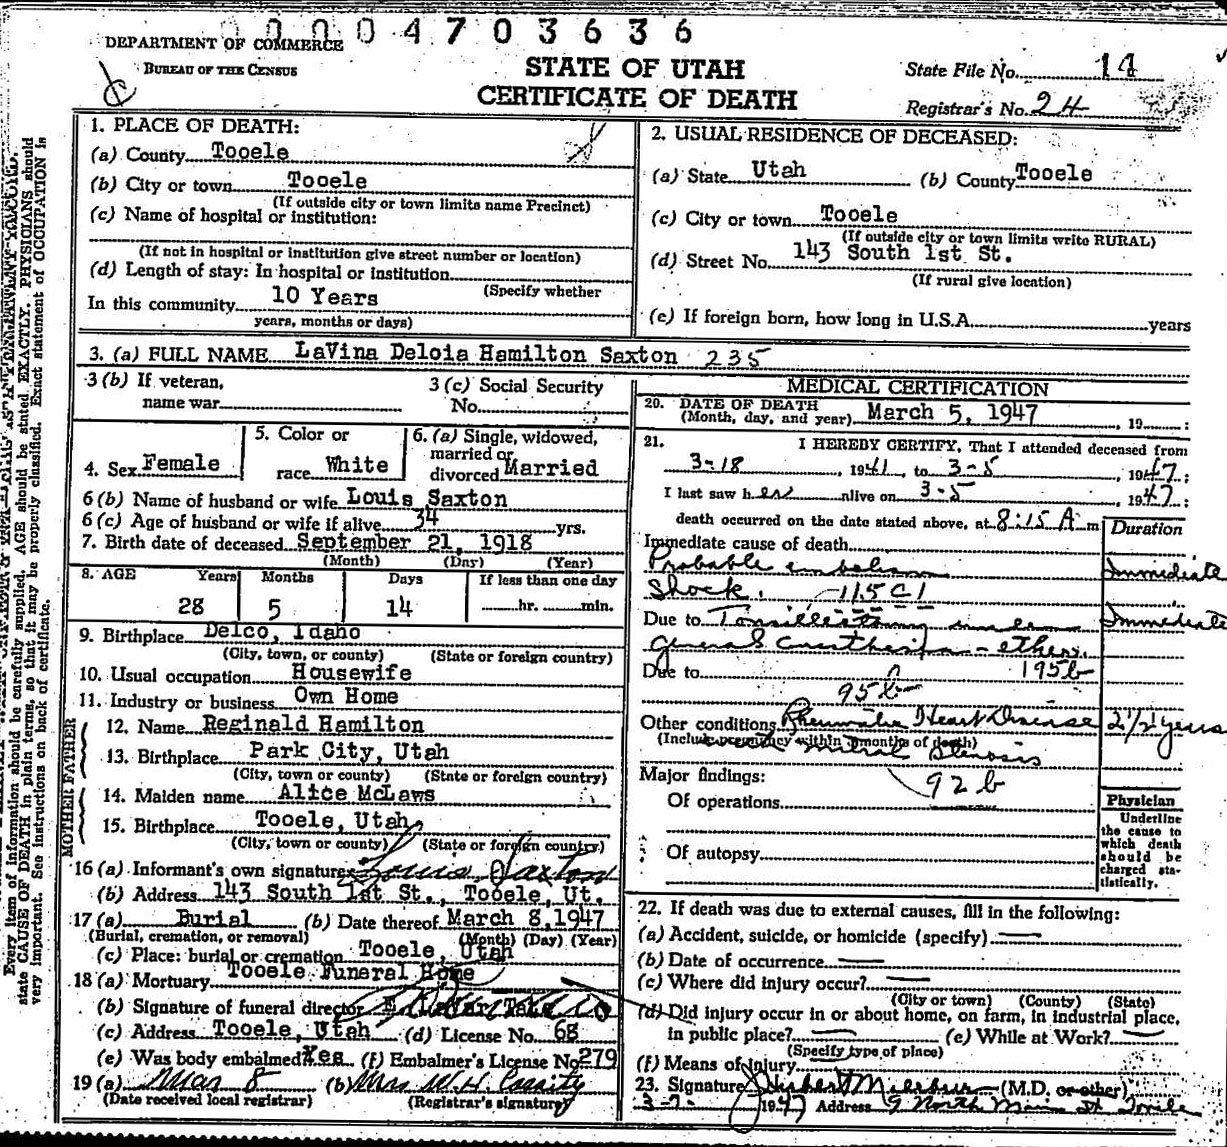 00004703636
DEPARTMENT OF COMMERCE
BUREAU OF THE CENSUS
STATE OF UTAH
CERTIFICATE OF DEATH
State File No. 14
Registrar's No. 24
1. PLACE OF DEATH:
(a) County Tooele
(b) City or town Tooele
(If outside city or town limits name Precinct)
(c) Name of hospital or institution:
(If not in hospital or institution give street number or location)
(d) Length of stay: In hospital or institution
(Specify whether
In this community 10 Years
years, months or days)
2. USUAL RESIDENCE OF DECEASED:
(a) State Utah (b) County Tooele
(c) City or town Tooele
(If outside city or town limits write RURAL)
(d) Street No. 143 South 1st St.
(If rural give location)
(e) If foreign born, how long in U.S.A. years
3. (a) FULL NAME LaVina Deloia Hamilton Saxton 235
3 (b) If veteran,
name war
3 (c) Social Security
No.
4. Sex Female
5. Color or
race White
6. (a) Single, widowed,
married or
divorced Married
6 (b) Name of husband or wife Louis Saxton
6 (c) Age of husband or wife if alive 34 yrs.
7. Birth date of deceased September 21, 1918
(Month) (Day) (Year)
8. AGE Years Months Days If less than one day
28 5 14 hr. min.
9. Birthplace Delco, Idaho
(City, town, or county) (State or foreign country)
10. Usual occupation Housewife
11. Industry or business Own Home
FATHER
12. Name Reginald Hamilton
13. Birthplace Park City, Utah
(City, town or county) (State or foreign country)
MOTHER
14. Maiden name Alice McLaws
15. Birthplace Tooele, Utah
(City, town or county) (State or foreign country)
16 (a) Informant's own signature Louis Saxton
(b) Address 143 South 1st St., Tooele, Ut.
17 (a) Burial (b) Date thereof March 8, 1947
(Burial, cremation, or removal) (Month) (Day) (Year)
(c) Place: burial or cremation Tooele, Utah
18 (a) Mortuary Tooele Funeral Home
(b) Signature of funeral director
(c) Address Tooele, Utah (d) License No. 68
(e) Was body embalmed Yes (f) Embalmer's License No 279
19 (a) Mar 8 (b) Mrs W. H. Cassity
(Date received local registrar) (Registrar's signature)
MEDICAL CERTIFICATION
20. DATE OF DEATH
(Month, day, and year) March 5, 1947, 19 :
21. I HEREBY CERTIFY, That I attended deceased from
3-18, 1941, to 3-5, 1947;
I last saw her alive on 3-5, 1947;
death occurred on the date stated above, at 8:15 A m
Duration
Immediate cause of death
Probable embolism Immediate
Shock. 115 C1
Due to Tonsillectomy under Immediate
general anesthesia - ether.
Due to 195b
95b
Other conditions Rheumatic Heart Disease 2 1/2 years
(Include pregnancy within 3 months of death)
mitral stenosis
Major findings: 92b
Of operations
Of autopsy
Physician
Underline
the cause to
which death
should be
charged sta-
tistically.
22. If death was due to external causes, fill in the following:
(a) Accident, suicide, or homicide (specify)
(b) Date of occurrence
(c) Where did injury occur?
(City or town) (County) (State)
(d) Did injury occur in or about home, on farm, in industrial place,
in public place? (e) While at Work?
(Specify type of place)
(f) Means of injury
23. Signature (M.D. or other)
3-7- 1947 Address 9 North Main St Tooele
Every item of information should be carefully supplied. AGE should be stated EXACTLY. PHYSICIANS should
state CAUSE OF DEATH in plain terms, so that it may be properly classified. Exact statement of OCCUPATION is
very important. See instructions on back of certificate.